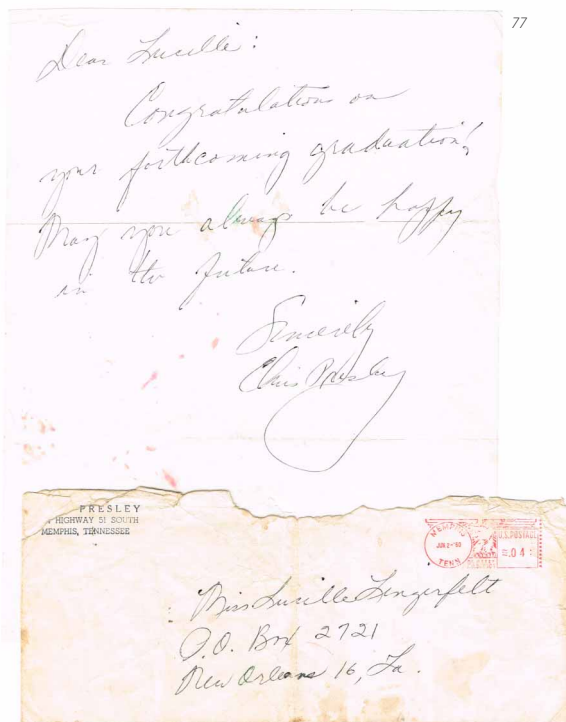 77
Dear Lucille:
Congratulations on
your forthcoming graduation!
May you always be happy
in the future.
Sincerely
Elvis Presley
PRESLEY
HIGHWAY 51 SOUTH
MEMPHIS, TENNESSEE
MEMPHIS
JUN 2-'60
TENN
U.S. POSTAGE
.04
Miss Lucille Lingerfelt
P.O. Box 2721
New Orleans 16, La.